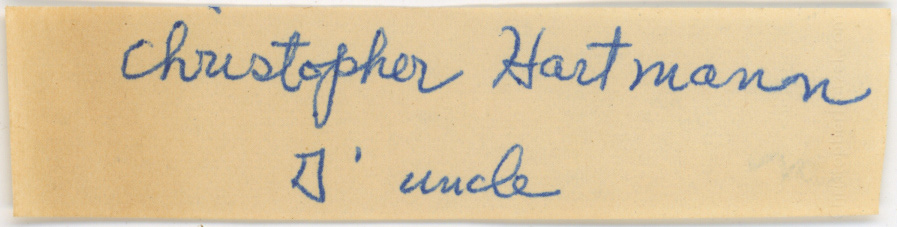 Christopher Hartmann
J' uncle